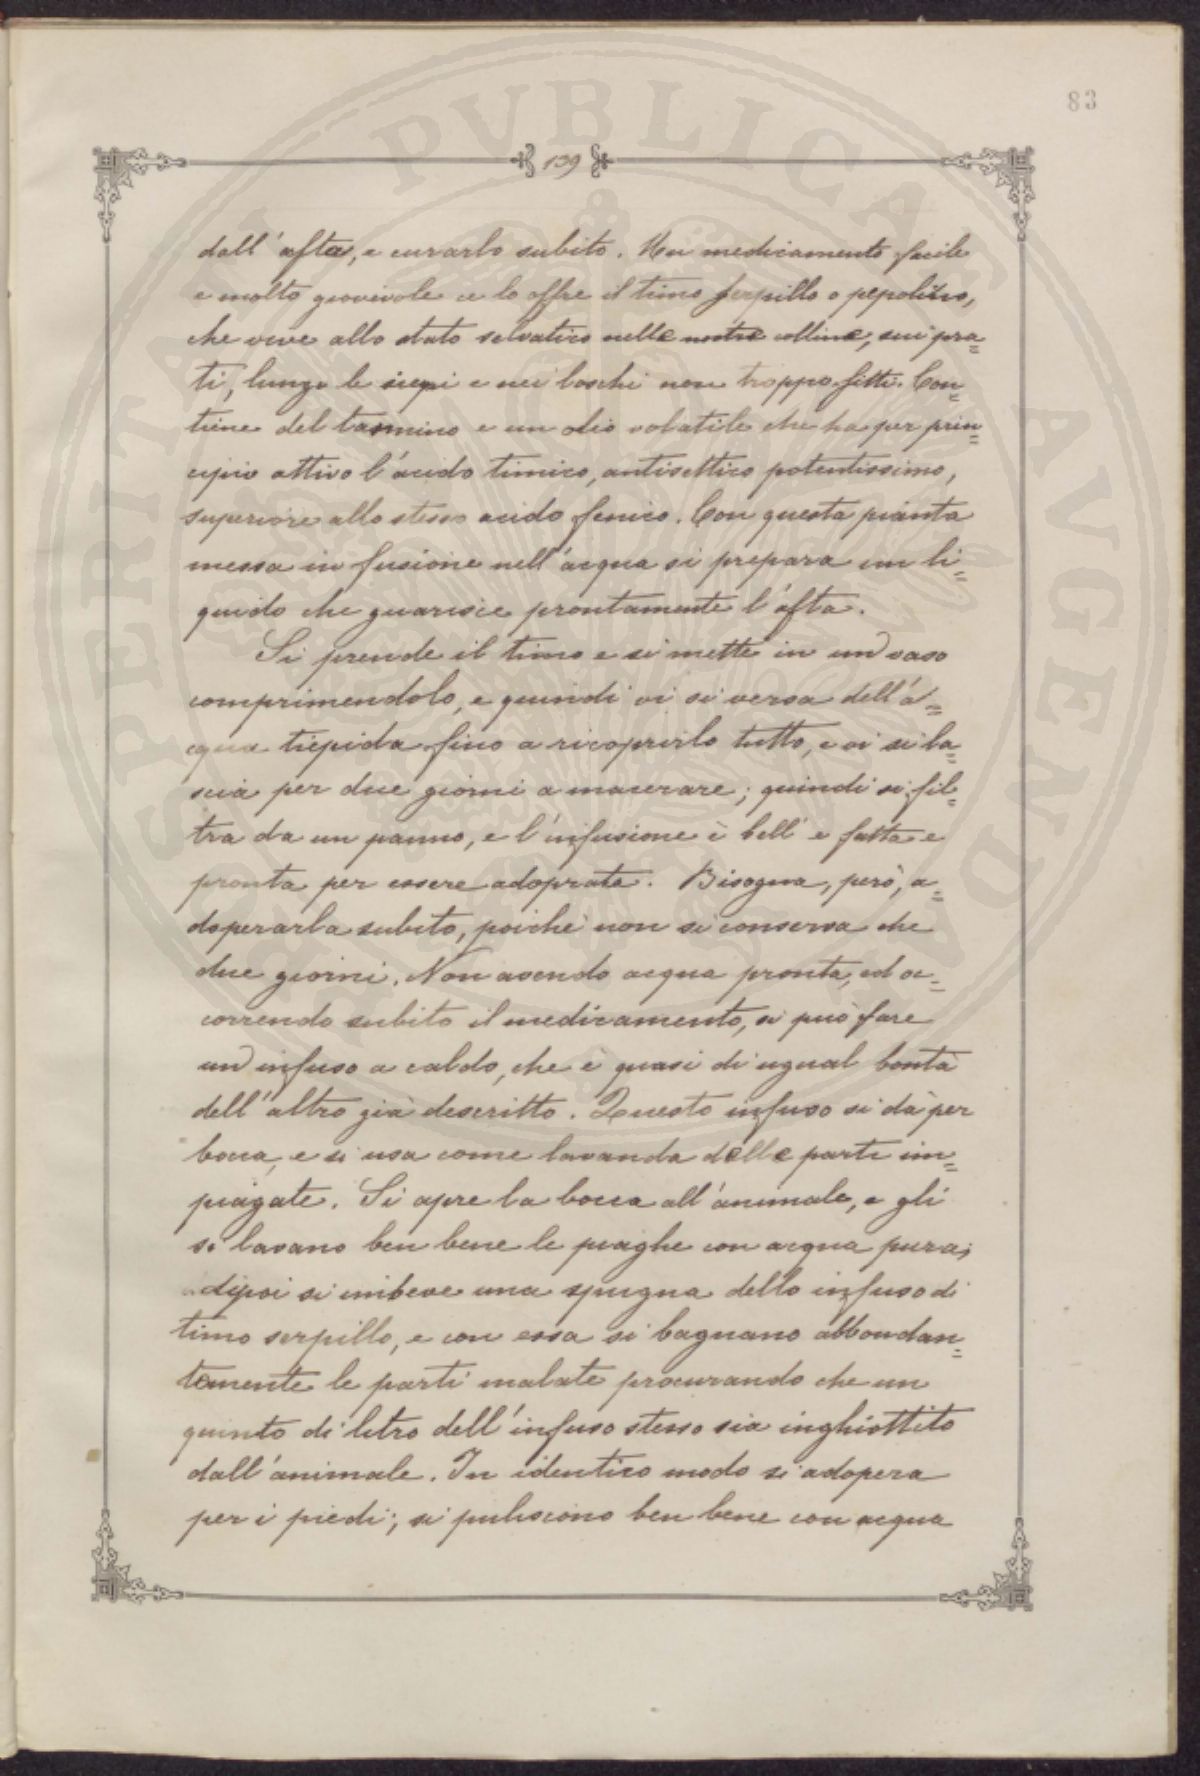 83
139
dall'afta, e curarlo subito. Un medicamento facile
e molto giovevole ce lo offre il timo serpillo o pepolino,
che vive allo stato selvatico nelle nostre colline, sui pra=
ti, lungo le siepi e nei boschi non troppo fitti. Con=
tiene del tannino e un olio volatile che ha per prin=
cipio attivo l'acido timico, antisettico potentissimo,
superiore allo stesso acido fenico. Con questa pianta
messa in fusione nell'acqua si prepara un li=
quido che guarisce prontamente l'afta.
Si prende il timo e si mette in un vaso
comprimendolo, e quindi vi si versa dell'a=
cqua tiepida fino a ricoprirlo tutto, e vi si la=
scia per due giorni a macerare; quindi si fil=
tra da un panno, e l'infusione è bell'e fatta e
pronta per essere adoprata. Bisogna, però, a=
doperarla subito, poichè non si conserva che
due giorni. Non avendo acqua pronta, ed oc=
correndo subito il medicamento, si può fare
un infuso a caldo, che è quasi di ugual bontà
dell'altro già descritto. Questo infuso si dà per
bocca, e si usa come lavanda delle parti im=
piagate. Si apre la bocca all'animale, e gli
si lavano ben bene le piaghe con acqua pura;
dipoi si imbeve una spugna dello infuso di
timo serpillo, e con essa si bagnano abbondan=
temente le parti malate procurando che un
quinto di litro dell'infuso stesso sia inghiottito
dall'animale. In identico modo si adopera
per i piedi; si puliscono ben bene con acqua